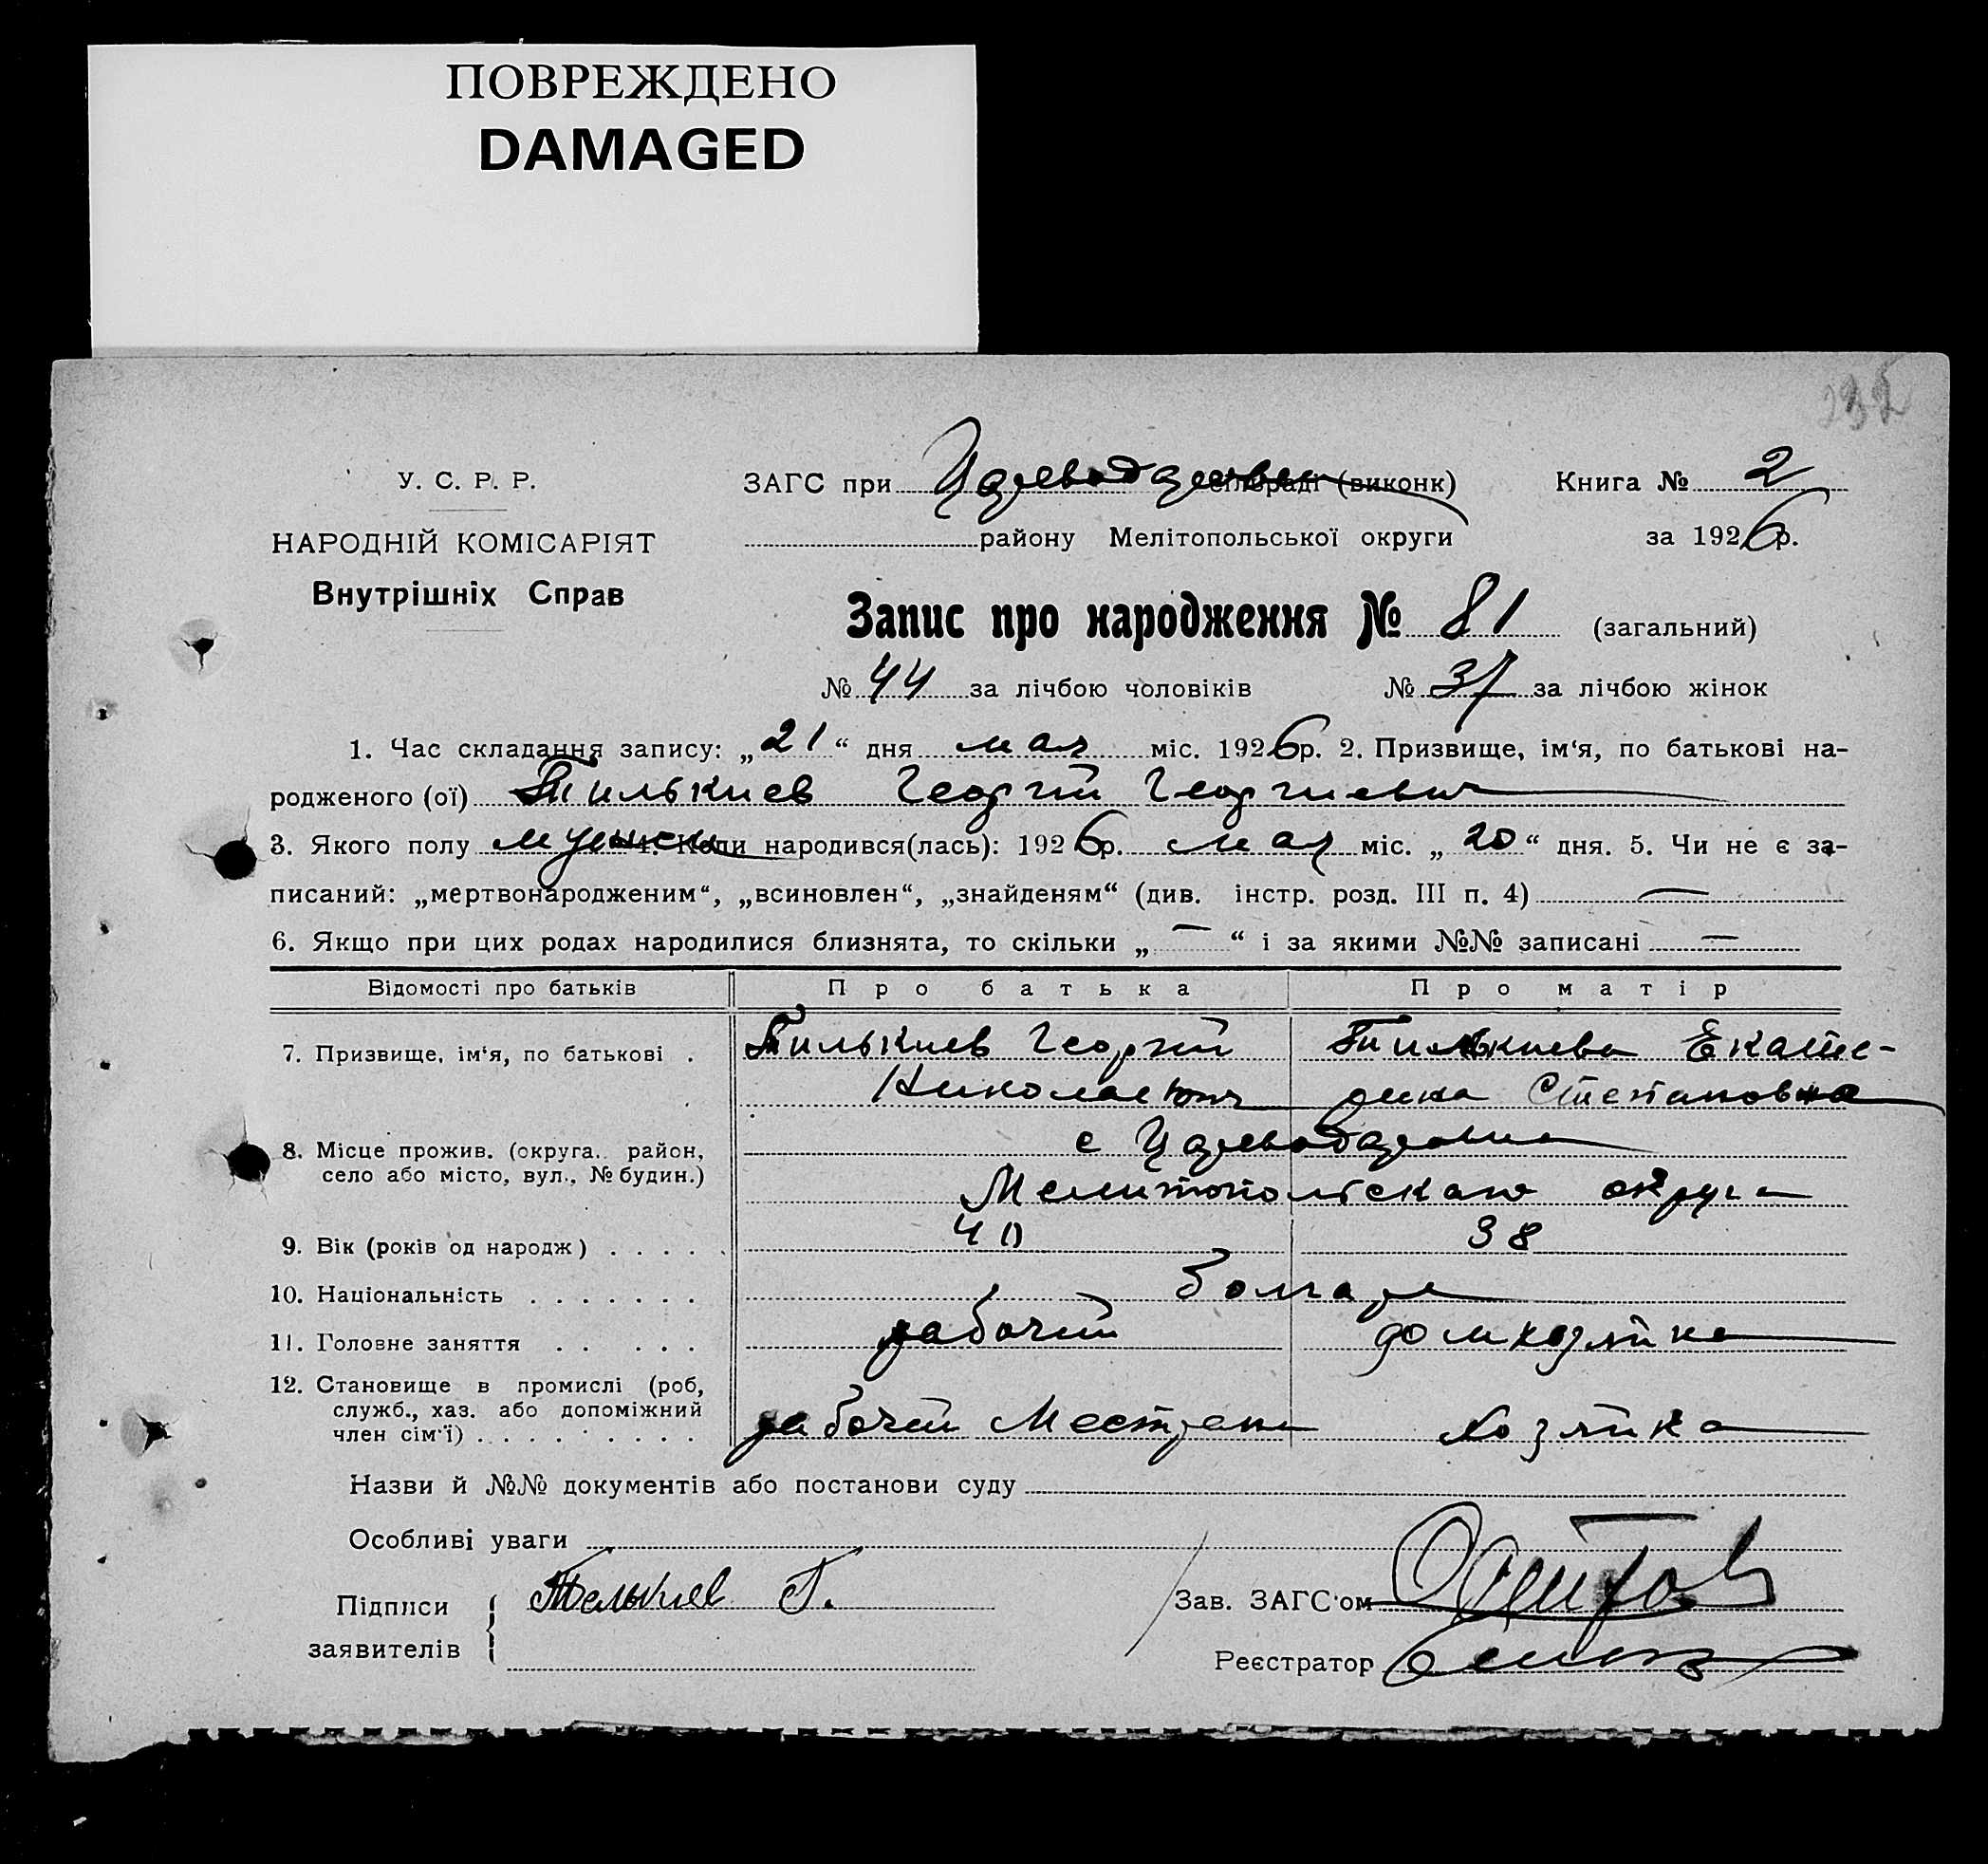 ПОВРЕЖДЕНО
DAMAGED
У. С. Р. Р.
НАРОДНІЙ КОМІСАРІЯТ
Внутрішніх Справ
ЗАГС при Цареводаровке сільраді (виконк)
Книга № 2
району Мелітопольської округи
за 1926 р.
Запис про народження № 81 (загальний)
№ 44 за лічбою чоловіків № 37 за лічбою жінок
1. Час складання запису: „21“ дня мая міс. 1926 р. 2. Призвище, ім‘я, по батькові на-
родженого (ої) Тилькиев Георгий Георгиевич
3. Якого полу мужск 4. Коли народився(лась): 1926 р. мая міс. „20“ дня. 5. Чи не є за-
писаний: „мертвонародженим“, „всиновлен“, „знайденям“ (див. інстр. розд. III п. 4) —
6. Якщо при цих родах народилися близнята, то скільки „—“ і за якими №№ записані —
Відомості про батьків Про батька Про матір
7. Призвище, ім‘я, по батькові . Тилькиев Георгий Тилькиева Екате-
Николаевич рина Степановна
8. Місце прожив. (округа, район,
село або місто, вул., № будин.)
с
Мелитопольскаго округа
9. Вік (років од народж) . . . . . 40 38
10. Національність . . . . . . . болгаре
11. Головне заняття . . . . . рабочий домхозяйка
12. Становище в промислі (роб,
служб., хаз. або допоміжний
член сім‘ї) . . . . . . . . . рабочий Хозяйка
Назви й №№ документів або постанови суду
Особливі уваги
Підписи
заявителів
Телькиев Г.
Зав. ЗАГС‘ом
Реєстратор